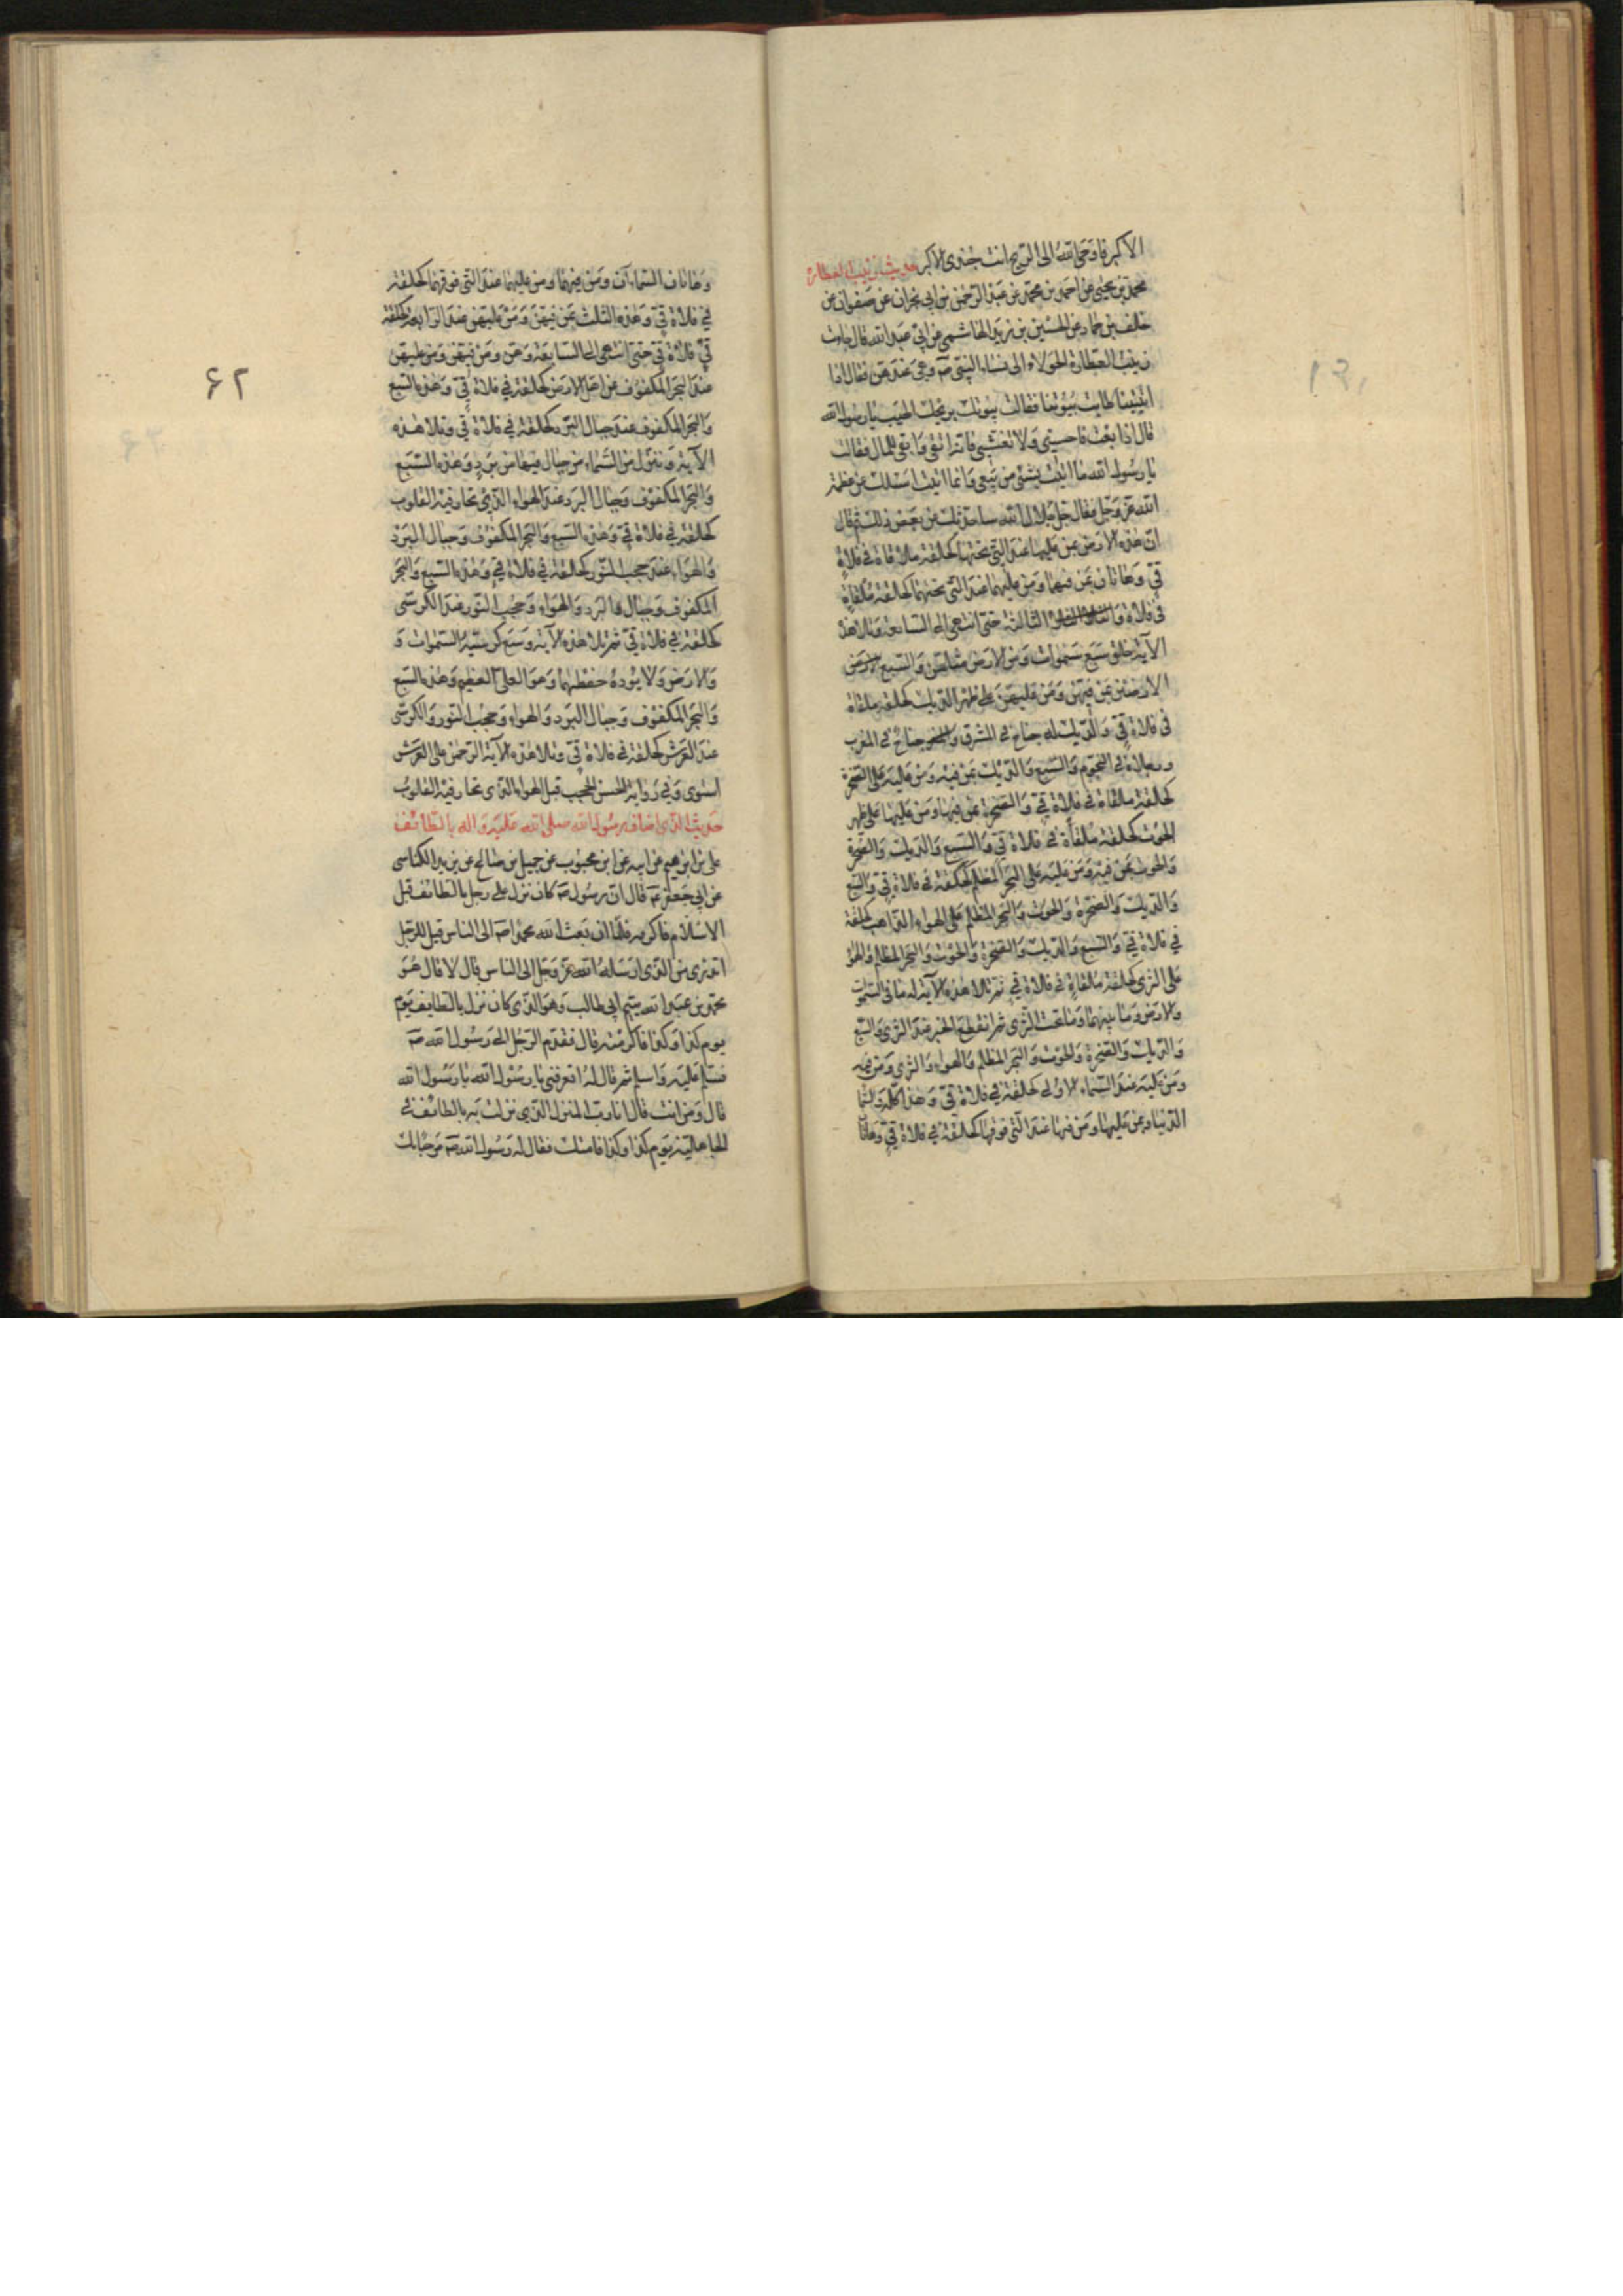 الاكبر فاوحى الله الى الريح انت جندى الاكبر حديث زينب العطارة
محمد بن يحيى عن احمد بن محمد عن عبد الرحمن بن ابى نجران عن صفوان عن
خلف بن حماد عن الحسين بن زيد الهاشمى عن ابى عبد الله قال جاءت
زينب العطارة الحولاء الى نساء النبى صم وهى عندهن فقال اذا
اتيتنا طابت بيوتنا فقالت بيوتك بريحك اطيب يا رسول الله
قال اذا بعت فاحسنى ولا تغشى فانه اتقى وابقى للمال فقالت
يا رسول الله ما اتيت بشئ من بيعى وانما اتيت اسئلك عن عظمة
الله عز وجل فقال جل جلال الله ساحدثك عن بعض ذلك ثم قال
ان هذه الارض بمن عليها عند التى تحتها كحلقة ملاقاة فى فلاة
قى وهاتان بمن فيهما ومن عليهما عند التى تحتهما كحلقة ملقاة
فى فلاة قى الثالثة حتى انتهى الى السابعة وتلا هذه
الآية خلق سبع سموات ومن الارض مثلهن والسبع
الارضين بمن فيهن ومن عليهن على ظهر الديك كحلقة ملقاة
فى فلاة قى والديك له جناح فى المشرق وجناح فى المغرب
ورجلاه فى التخوم والسبع والديك بمن فيه ومن عليه على الصخرة
كحلقة ملقاة فى فلاة قى والصخرة بمن فيها ومن عليها على ظهر
الحوت كحلقة ملقاة فى فلاة قى والسبع والديك والصخرة
والحوت بمن فيه ومن عليه على البحر المظلم كحلقة فى فلاة قى والسبع
والديك والصخرة والحوت والبحر المظلم على الهواء الذاهب كحلقة
فى فلاة قى والسبع والديك والصخرة والحوت والبحر المظلم والهواء
على الثرى كحلقة ملقاة فى فلاة قى ثم تلا هذه الآية له ما فى السموات
والارض وما بينهما وما تحت الثرى ثم انقطع الخبر عند الثرى والسبع
والديك والصخرة والحوت والبحر المظلم والهواء والثرى ومن فيه
ومن عليه عند السماء الاولى كحلقة فى فلاة قى وهذا كله والسماء
الدنيا بمن عليها ومن فيها عند التى فوقها كحلقة فى فلاة قى وهاتان
وهاتان السماءان ومن فيهما ومن عليهما عند التى فوقهما كحلقة
فى فلاة قى وهذه الثلث بمن فيهن ومن عليهن عند الرابعة كحلقة
فى فلاة قى حتى انتهى الى السابعة وهن ومن فيهن ومن عليهن
عند البحر المكفوف عن اهل الارض كحلقة فى فلاة قى وهذه السبع
والبحر المكفوف عند جبال البرد كحلقة فى فلاة قى وتلا هذه
الآية وننزل من السماء من جبال فيها من برد وهذه السبع
والبحر المكفوف وجبال البرد عند الهواء الذى تحار فيه القلوب
كحلقة فى فلاة قى وهذه السبع والبحر المكفوف وجبال البرد
والهواء عند حجب النور كحلقة فى فلاة قى وهذه السبع والبحر
المكفوف وجبال البرد والهواء وحجب النور عند الكرسى
كحلقة فى فلاة قى ثم تلا هذه الآية وسع كرسيه السموات و
والارض ولا يؤده حفظهما وهو العلى العظيم وهذه السبع
والبحر المكفوف وجبال البرد والهواء وحجب النور والكرسى
عند العرش كحلقة فى فلاة قى وتلا هذه الآية الرحمن على العرش
استوى وفى رواية الحسن الحجب قبل الهواء الذى تحار فيه القلوب
حديث الذى اضاف رسول الله صلى الله عليه واله بالطائف
على بن ابراهيم عن ابيه عن ابن محبوب عن جميل بن صالح عن يزيد الكناسى
عن ابى جعفر عم قال ان رسول صم كان نزل على رجل بالطائف قبل
الاسلام فاكرمه فلما ان بعث الله محمدا صم الى الناس قيل للرجل
اتدرى من الذى ارسله الله عز وجل الى الناس قال لا قال هو
محمد بن عبد الله يتيم ابى طالب وهو الذى كان نزل بالطايف يوم
يوم كذا وكذا فاكرمته قال فقدم الرجل الى رسول الله صم
فسلم عليه واسلم ثم قال له اتعرفنى يا رسول الله يا رسول الله
قال ومن انت قال انا رب المنزل الذى نزلت به بالطائف فى
الجاهلية يوم كذا وكذا فقال له رسول الله صم مرحبا بك
۶۲